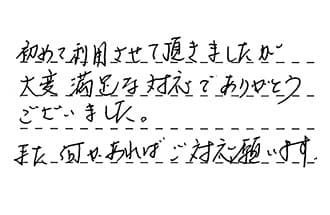 初めて利用させて頂きましたが
大変満足な対応でありがとう
ございました。
また何かあればご対応願います。